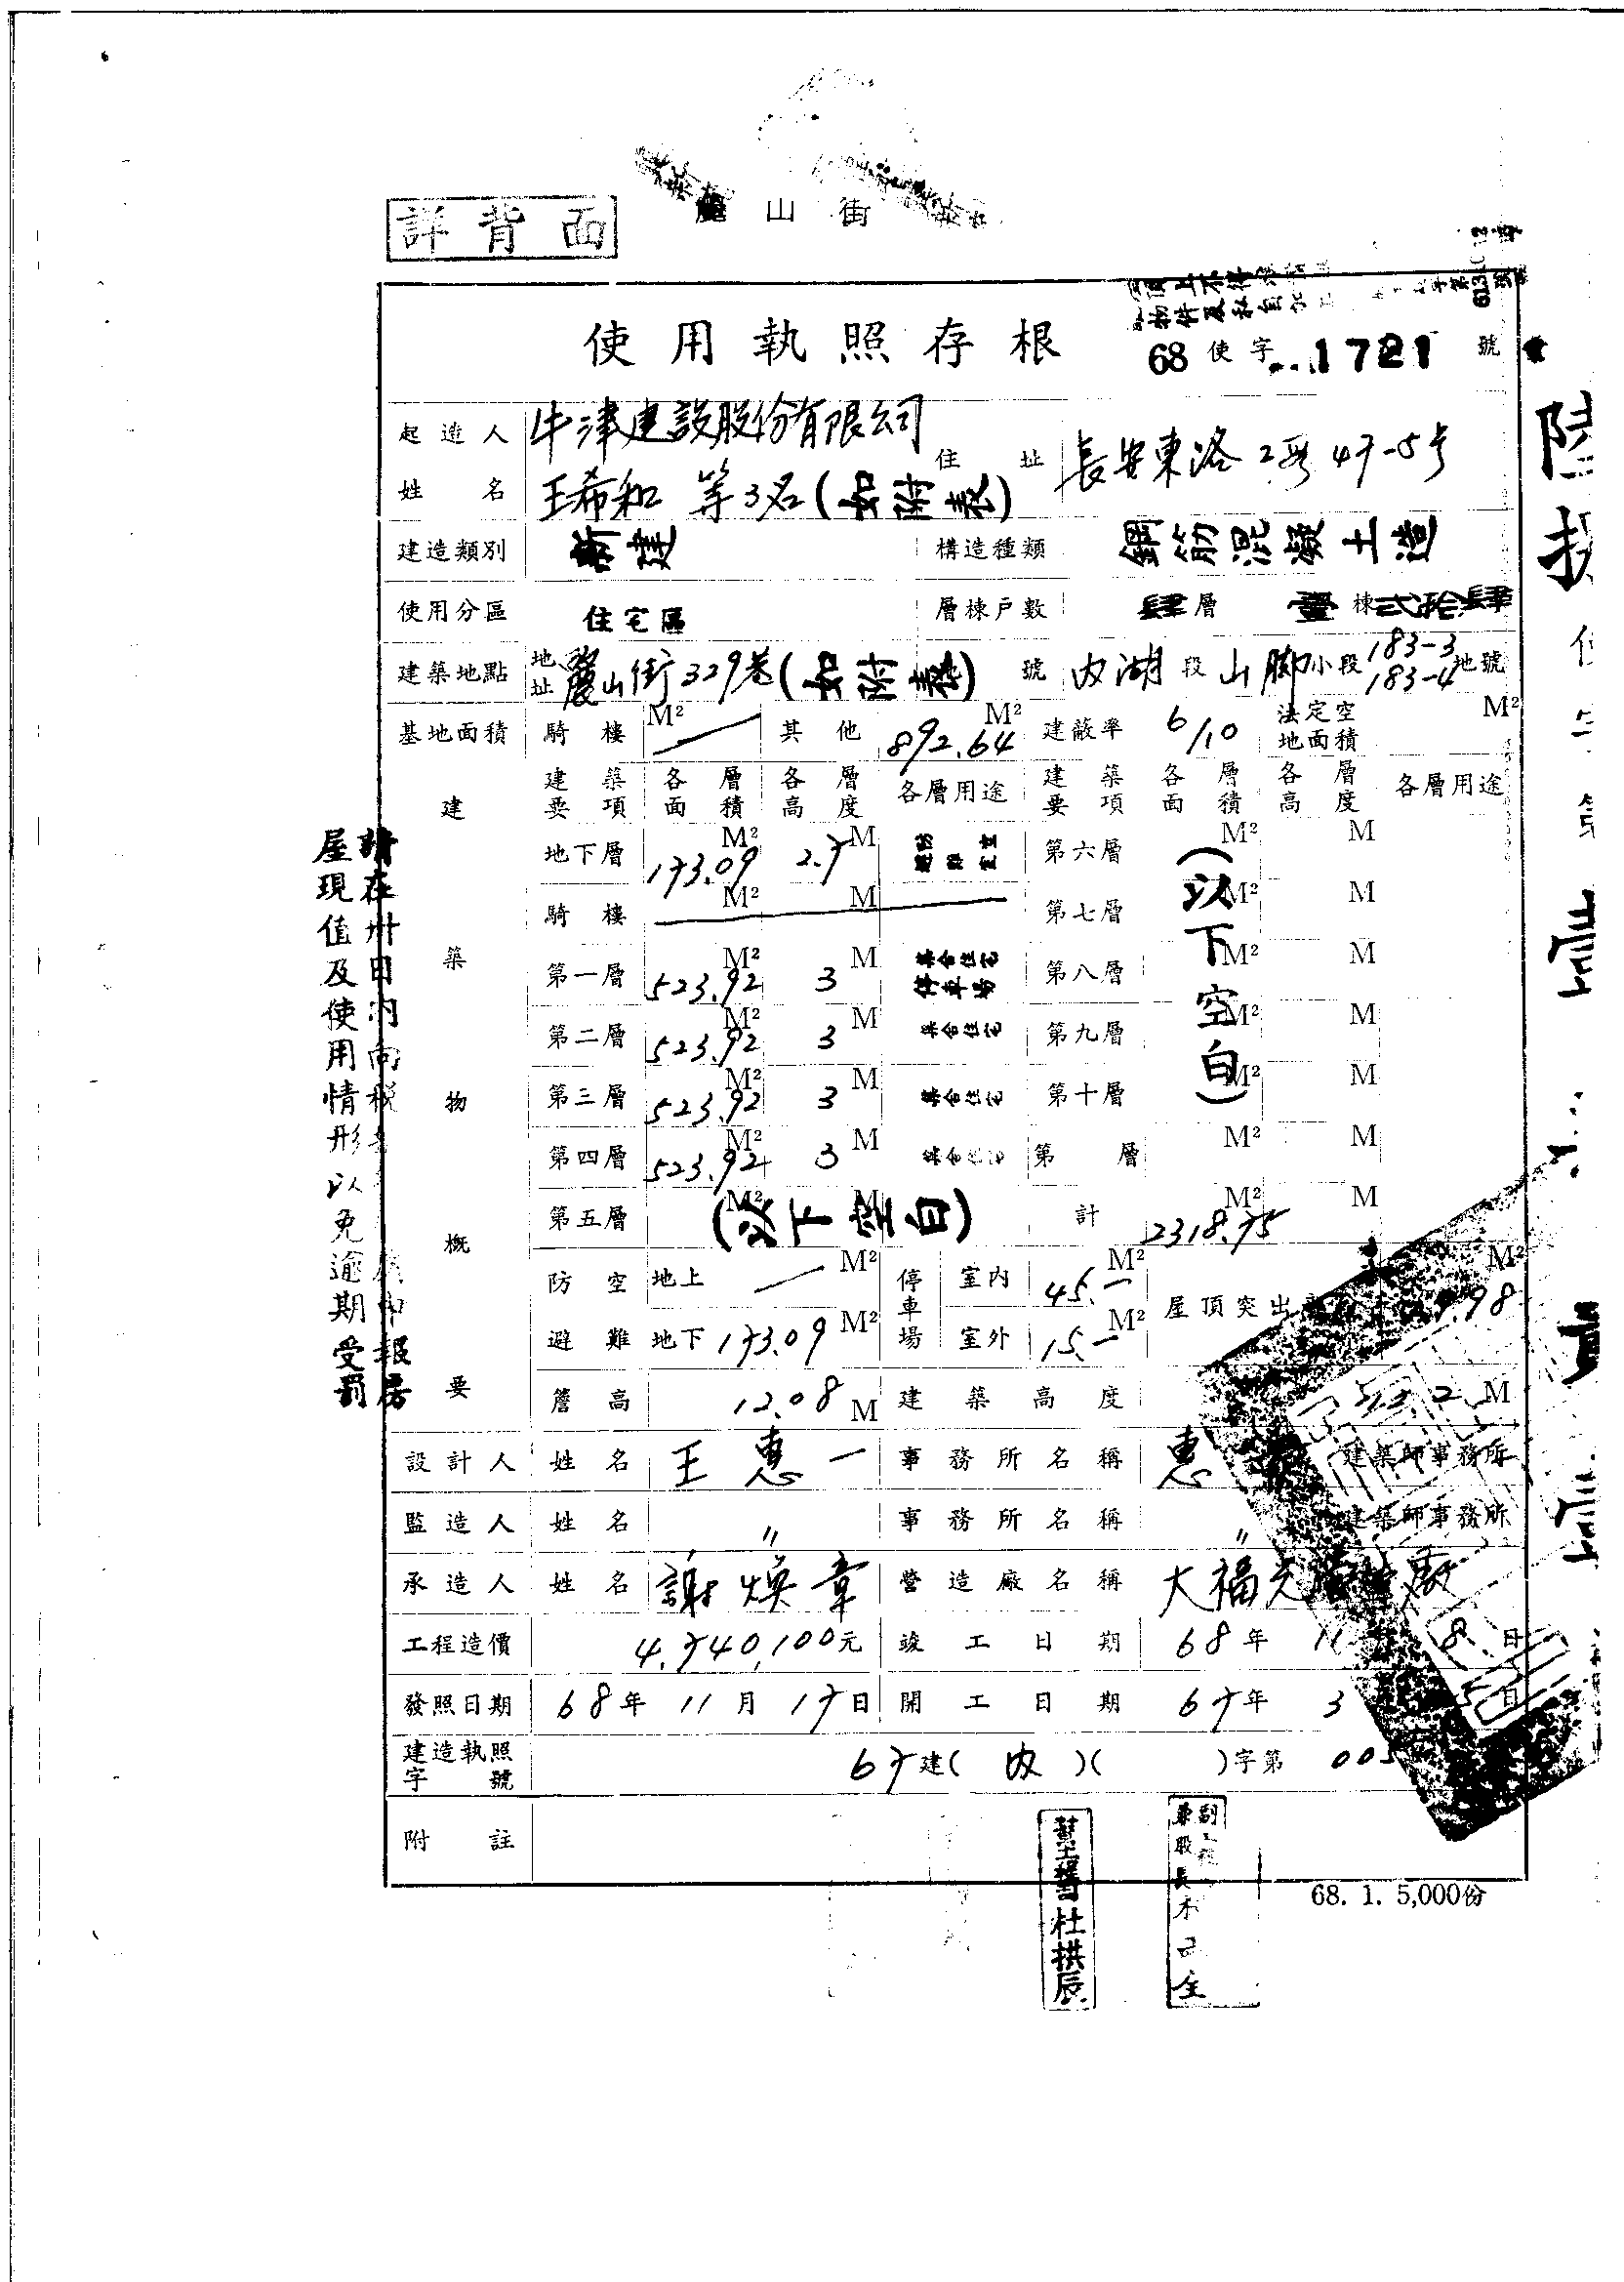 麗山街
詳背面
使用執照存根
68使字1721號
起造人姓名 牛津建設股份有限公司
王希和 等3名(如附表)
住址 長安東路2段47-5号
建造類別 新建 構造種類 鋼筋混凝土造
使用分區 住宅區 層棟戶數 肆層 壹棟 弍拾肆
建築地點 地址 麗山街329巷(如附表)號 內湖段山腳小段183-3 183-4地號
基地面積 騎樓 M² 其他 892.64 M² 建蔽率 6/10 法定空地面積 M²
建築物概要
建築要項 各層面積 各層高度 各層用途 建築要項 各層面積 各層高度 各層用途
地下層 173.09 M² 2.7 M 第六層 M² M
騎樓 M² M 第七層 M² M
第一層 523.92 M² 3 M 集合住宅 停車場 第八層 M² M
第二層 523.92 M² 3 M 集合住宅 第九層 M² M
第三層 523.92 M² 3 M 集合住宅 第十層 M² M
第四層 523.92 M² 3 M 集合住宅 第 層 M² M
(以下空白)
第五層 (以下空白) M² M 計 2318.75 M² M
防空避難 地上 M² 停車場 室內 45.- M² 屋頂突出 M²
地下 173.09 M² 室外 15.- M²
簷高 12.08 M 建築高度 M
設計人 姓名 王惠一 事務所名稱 惠 建築師事務所
監造人 姓名 〃 事務所名稱 〃 建築師事務所
承造人 姓名 謝煥章 營造廠名稱 大福
工程造價 4,740,100元 竣工日期 68年11 8日
發照日期 68年11月17日 開工日期 67年3 5日
建造執照字號 67建(內)( )字第
附註
68. 1. 5,000份
請在卅日內向稅 申報房
屋現值及使用情形以免逾期受罰
杜拱辰